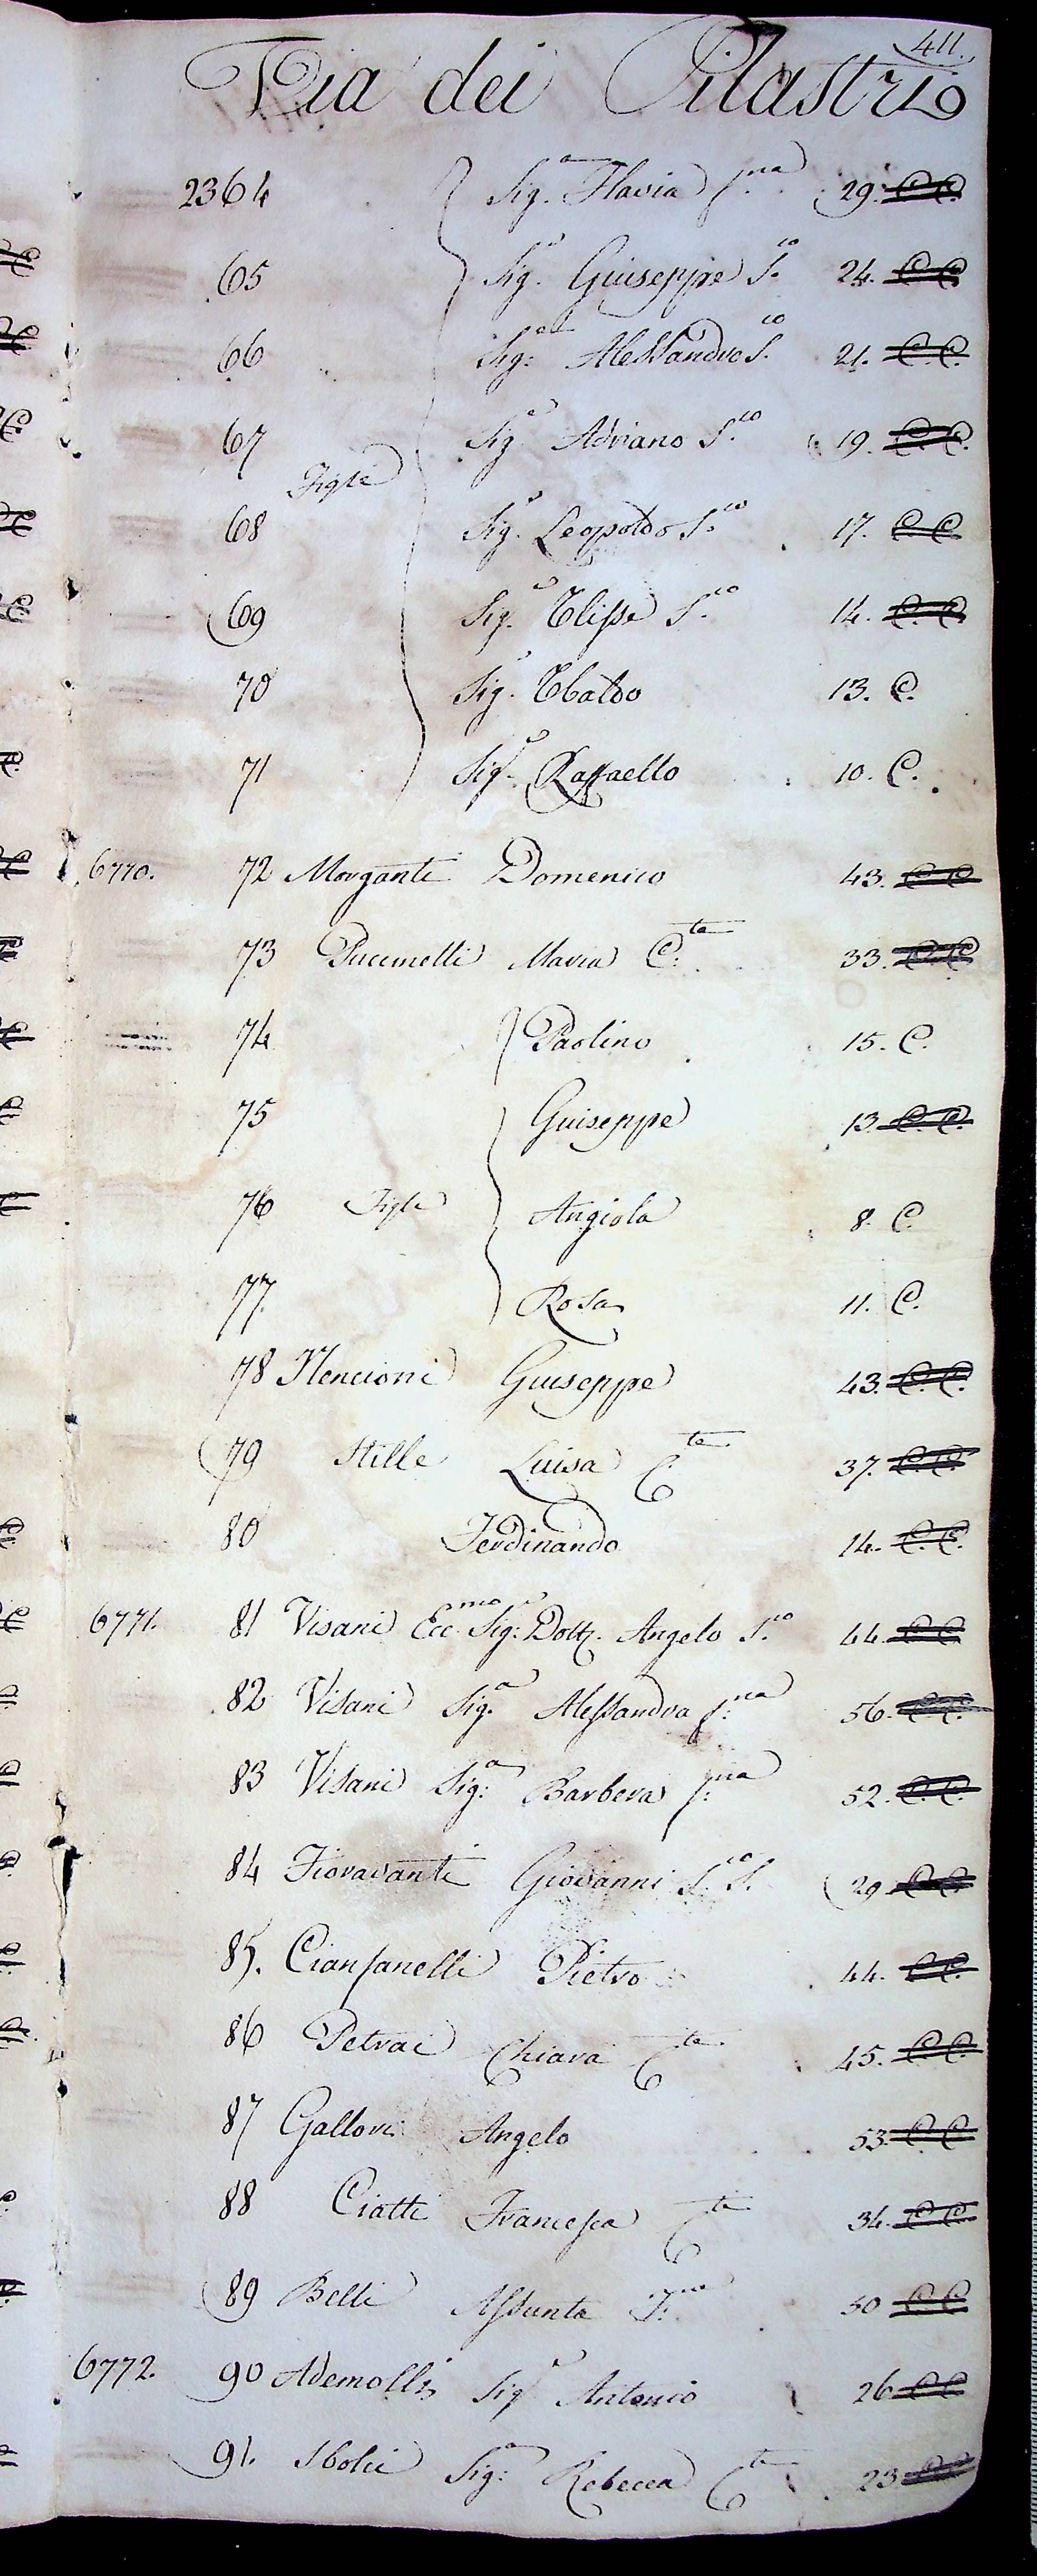 411.
Via dei Pilastri
2364 Sig.a Flavia f.na 29. C C.
65 Sig.e Giuseppe S.co 24. C C
66 Sig.e Alessandro S.co 21. C C.
67 Sig.e Adriano S.co 19. C C.
Figli
68 Sig.e Leopoldo S.co 17. C C.
69 Sig.e Ulisse S.co 14. C C.
70 Sig.e Ubaldo 13. C.
71 Sig.e Raffaello 10. C.
6770. 72 Morganti Domenico 43. C C
73 Puccinelli Maria C.ta 33. C C
74 Paolino 15. C.
75 Giuseppe 13. C. C.
76 Figli Angiola 8. C.
77. Rosa 11. C.
78 Mencioni Giuseppe 43. C. C.
79 Stille Luisa C.ta 37. C. C.
80 Ferdinando 14. C. C.
6771. 81 Visani Ecc.mo Sig.e Dott. Angelo S.co 44. C C
82 Visani Sig.a Alessandra f.na 56. C C.
83 Visani Sig.a Barbera f.na 52. C. C.
84 Fioravanti Giovanni S.co S. 29. C C.
85. Cianfanelli Pietro 44. C C.
86 Petrai Chiara C.ta 45. C C.
87 Gallori Angelo 53. C C.
88 Ciatti Francesca C.ta 34. C C.
89 Belli Assunta 50 C C.
6772. 90 Ademolli Sig.e Antonio 26 C C
91. Sbolci Sig.a Rebecca C.ta 23 C C